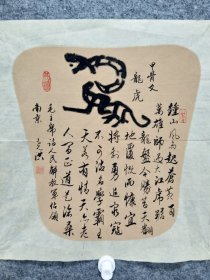 鐘山風雨起蒼黃百
萬雄師過大江虎踞
龍盤今勝昔天翻
地覆慨而慷宜
將剩勇追窮寇
不可沽名學霸王
天若有情天亦老
人间正道是滄桑
毛主席詩人民解放軍佔領
南京
甲骨文
龍虎